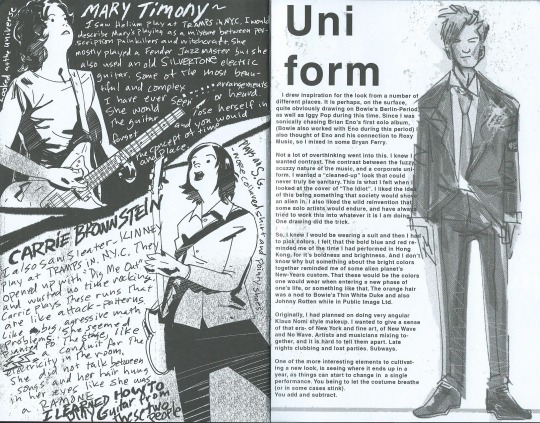 MARY TIMONY~
I saw Helium play at TRAMPS in NYC. I would
describe Mary's playing as a mixture between per-
scription Painkillers and witchcraft. She
mostly played a Fender Jazzmaster but she
also used an old SILVERTONE electric
guitar. Some of the most beau-
tiful and complex arrangements
I have ever seen or heard.
She would lose herself in
the guitar and you would
forget the concept of time
and place
looked
universe
CARRIE BROWNSTEIN
I also saw Sleater KINNEY
play at TRAMPS in NYC. They
opened up with "Dig Me Out"
and wasted no time rocking.
Carrie plays these runs that
are like attack-patterns.
Very aggressive math
problems. She seems
in the room.
She did not talk between
songs and her hair hung
in her eyes like she was
a RAMONE
I LEARNED HOW TO
Guitar from
these two
people
Uni
form
I drew inspiration for the look from a number of
different places. It is perhaps, on the surface,
quite obviously drawing on Bowie's Berlin-Period
as well as Iggy Pop during this time. Since I was
sonically chasing Brian Eno's first solo album,
(Bowie also worked with Eno during this period) I
also thought of Eno and his connection to Roxy
Music, so I mixed in some Bryan Ferry.
Not a lot of overthinking went into this. I knew I
wanted contrast. The contrast between the fuzzy
scuzzy nature of the music, and a corporate uni-
form. I wanted a "cleaned-up" look that could
never truly be sanitary. This is what I felt when I
looked at the cover of "The Idiot". I liked the idea
of this being something that society would see
an alien in. I also liked the wild reinvention that
some solo artists would endure, and have always
tried to work this into whatever it is I am doing.
One drawing did the trick.
So, I knew I would be wearing a suit and then I had
to pick colors. I felt that the bold blue and red re-
minded me of the time I had performed in Hong
Kong, for it's boldness and brightness. And I don't
know why but something about the bright colors
together reminded me of some alien planet's
New-Years custom. That these would be the colors
one would wear when entering a new phase of
one's life, or something like that. The orange hair
was a nod to Bowie's Thin White Duke and also
Johnny Rotten while in Public Image Ltd.
Originally, I had planned on doing very angular
Klaus Nomi style makeup. I wanted to give a sense
of that era- of New York and fine art, of New Wave
and No Wave. Artists and musicians mixing to-
gether, and it is hard to tell them apart. Late
nights clubbing and lost parties. Subways.
One of the more interesting elements to cultivat-
ing a new look, is seeing where it ends up in a
year, as things can start to change in a single
performance. You being to let the costume breathe
(or in some cases stink).
You add and subtract.